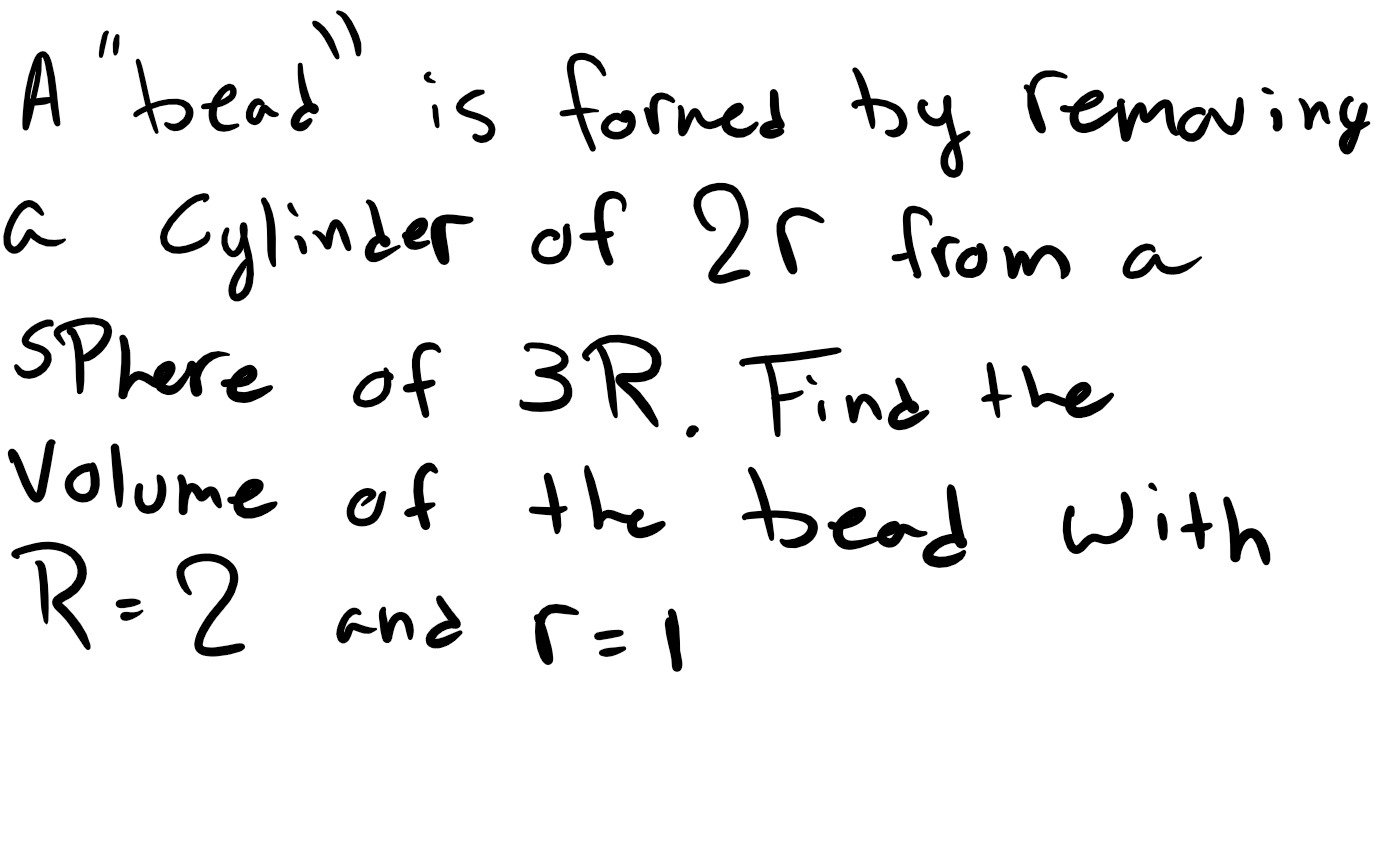 A "bead" is formed by removing
a Cylinder of 2r from a
sphere of 3R. Find the
Volume of the bead with
R=2 and r=1